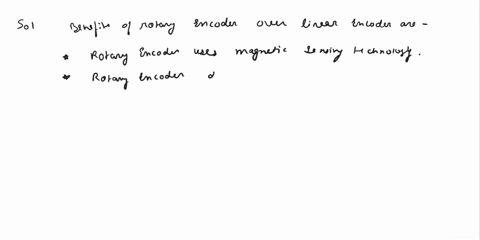 Sol Benefits of rotary Encoder over linear Encoder are -
* Rotary Encoder uses magnetic sensing technology.
* Rotary Encoder d